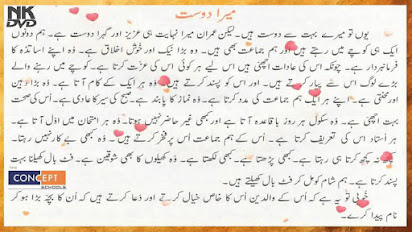 NK
DVD
میرا دوست
یوں تو میرے بہت سے دوست ہیں۔ لیکن عمران میرا نہایت ہی عزیز اور گہرا دوست ہے۔ ہم دونوں
ایک ہی کوچے میں رہتے ہیں اور ہم جماعت بھی ہیں۔ وہ بڑا نیک اور خوش اخلاق ہے۔ وہ اپنے اساتذہ کا
فرمانبردار ہے۔ چونکہ اس کی عادات اچھی ہیں اس لیے ہر کوئی اس کی عزت کرتا ہے۔ کوچے کے
بڑے لوگ اس سے پیار کرتے ہیں اور اس کو پسند کرتے ہیں۔ وہ ہر ایک کے کام آتا ہے۔ وہ بڑا ذہین
اور محنتی ہے۔ اپنے ہر ایک ہم جماعت کی مدد کرتا ہے۔ وہ نماز کا پابند ہے۔ صبح کی سیر کا عادی ہے۔ اُس کی صحت
بہت اچھی ہے۔ وہ سکول ہر روز باقاعدہ آتا ہے اور کبھی غیر حاضر نہیں ہوتا۔ وہ ہر امتحان میں اوّل آتا ہے۔
ہر اُستاد اس کی تعریف کرتا ہے۔ اُس کے ہم جماعت اس پر فخر کرتے ہیں۔ وہ کبھی بے کار نہیں رہتا۔
کچھ نہ کچھ کرتا ہی رہتا ہے۔ کبھی پڑھتا ہے۔ کبھی لکھتا ہے۔ وہ کھیلوں کا بھی شوقین ہے۔ فٹ بال کھیلنا بہت
پسند کرتا ہے۔ ہم شام کو مل کر فٹ بال کھیلتے ہیں۔
خوبی تو یہ ہے کہ اُس کے والدین اُس کا خاص خیال کرتے اور دعا کرتے ہیں کہ اُن کا بچّہ بڑا ہو کر
نام پیدا کرے۔
CONCEPT
SCHOOLS